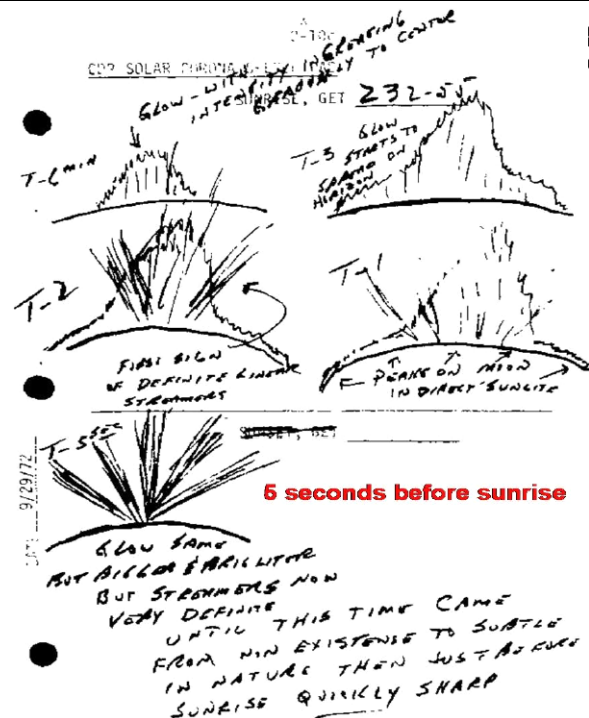 2-10c
CDR SOLAR CORONA
SUNRISE, GET 232-55
GLOW - WITH
INTENSITY INCREASING
GRADUALLY TO CENTER
T-6 MIN
T-3
GLOW
STARTS TO
SPREAD ON
HORIZON
T-2
FIRST SIGN
OF DEFINITE LINEAR
STREAMERS
T-1
PEAKS ON MOON
IN DIRECT SUNLITE
T-5 SEC
SUNSET, GET
5 seconds before sunrise
DATE 9/29/72
GLOW SAME
BUT BIGGER & BRIGHTER
BUT STREAMERS NOW
VERY DEFINITE
UNTIL THIS TIME CAME
FROM NON EXISTENSE TO SUBTLE
IN NATURE THEN JUST BEFORE
SUNRISE QUICKLY SHARP